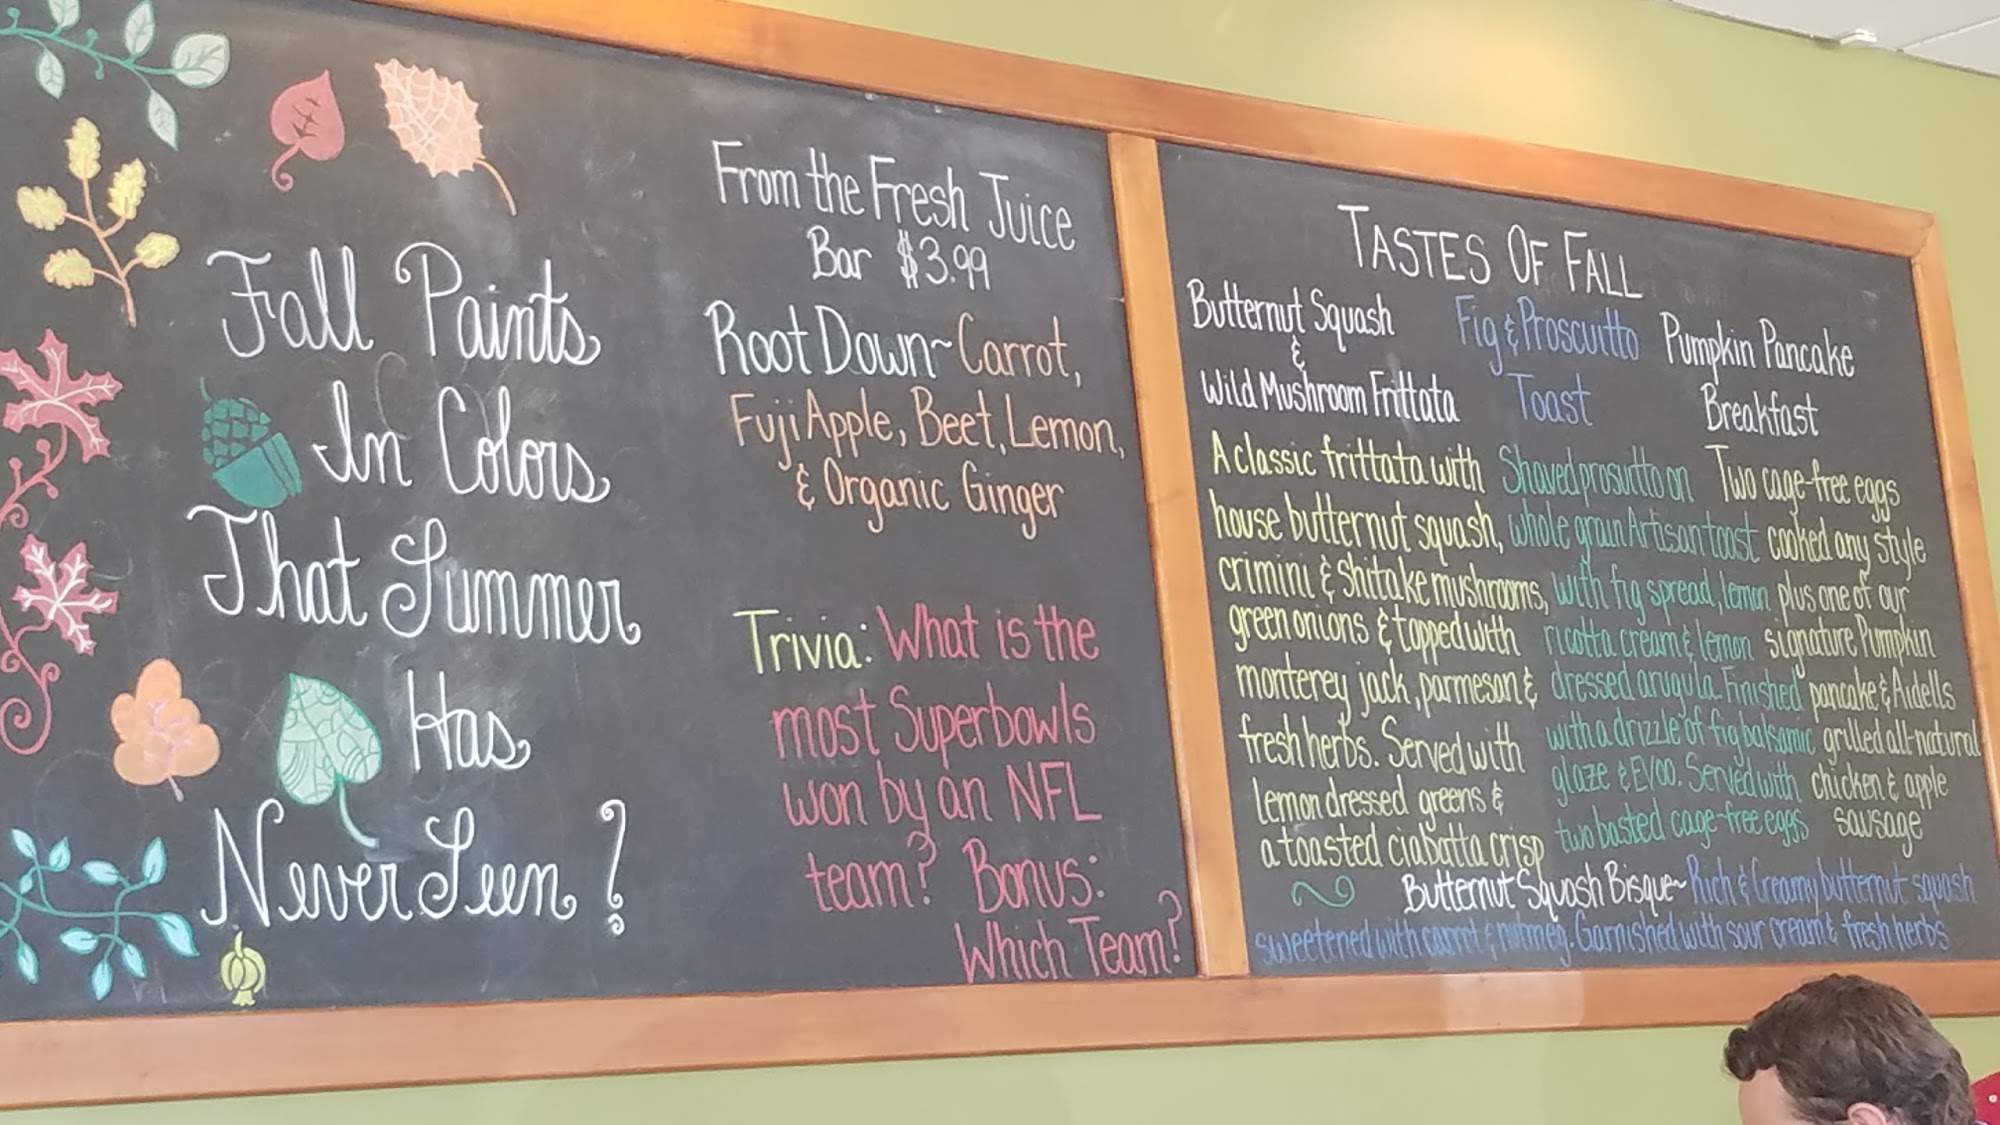 Fall Paints
In Colors
That Summer
Has
Never Seen ?
From the Fresh Juice
Bar $3.99
Root Down~ Carrot,
Fuji Apple, Beet, Lemon,
& Organic Ginger
Trivia: What is the
most Superbowls
won by an NFL
team? Bonus:
Which Team?
TASTES OF FALL
Butternut Squash
&
Wild Mushroom Frittata
A classic frittata with
house butternut squash,
crimini & shitake mushrooms,
green onions & topped with
monterey jack, parmesan &
fresh herbs. Served with
lemon dressed greens &
a toasted ciabatta crisp
Fig & Proscuitto
Toast
Shaved prosuitto on
whole grain Artisan toast
with fig spread, lemon
ricotta cream & lemon
dressed arugula. Finished
with a drizzle of fig balsamic
glaze & EVOO. Served with
two basted cage-free eggs
Pumpkin Pancake
Breakfast
Two cage-free eggs
cooked any style
plus one of our
signature Pumpkin
pancake & Aidells
grilled all-natural
chicken & apple
sausage
Butternut Squash Bisque~ Rich & Creamy butternut squash
sweetened with carrot & nutmeg. Garnished with sour cream & fresh herbs